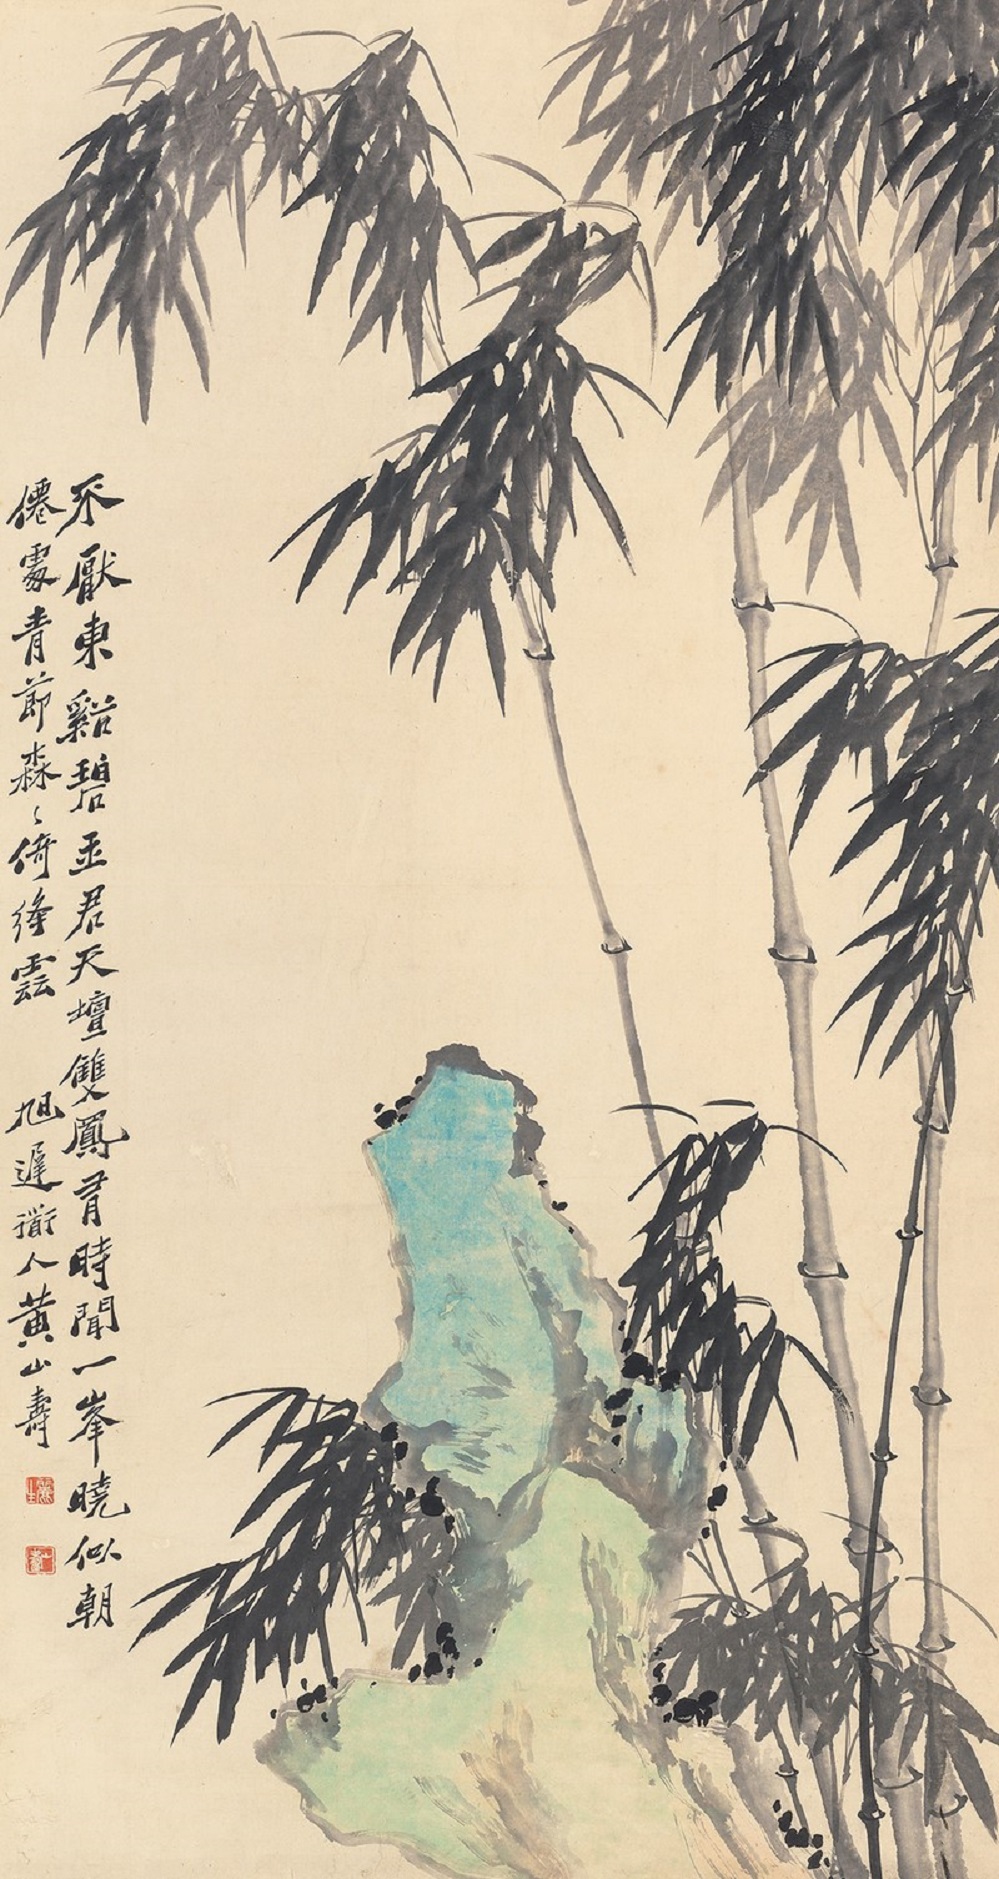 不厭東谿碧玉君天壇雙鳳有時聞一峯曉似朝
僊處青節森〻倚絳雲　旭遲衜人黃山壽